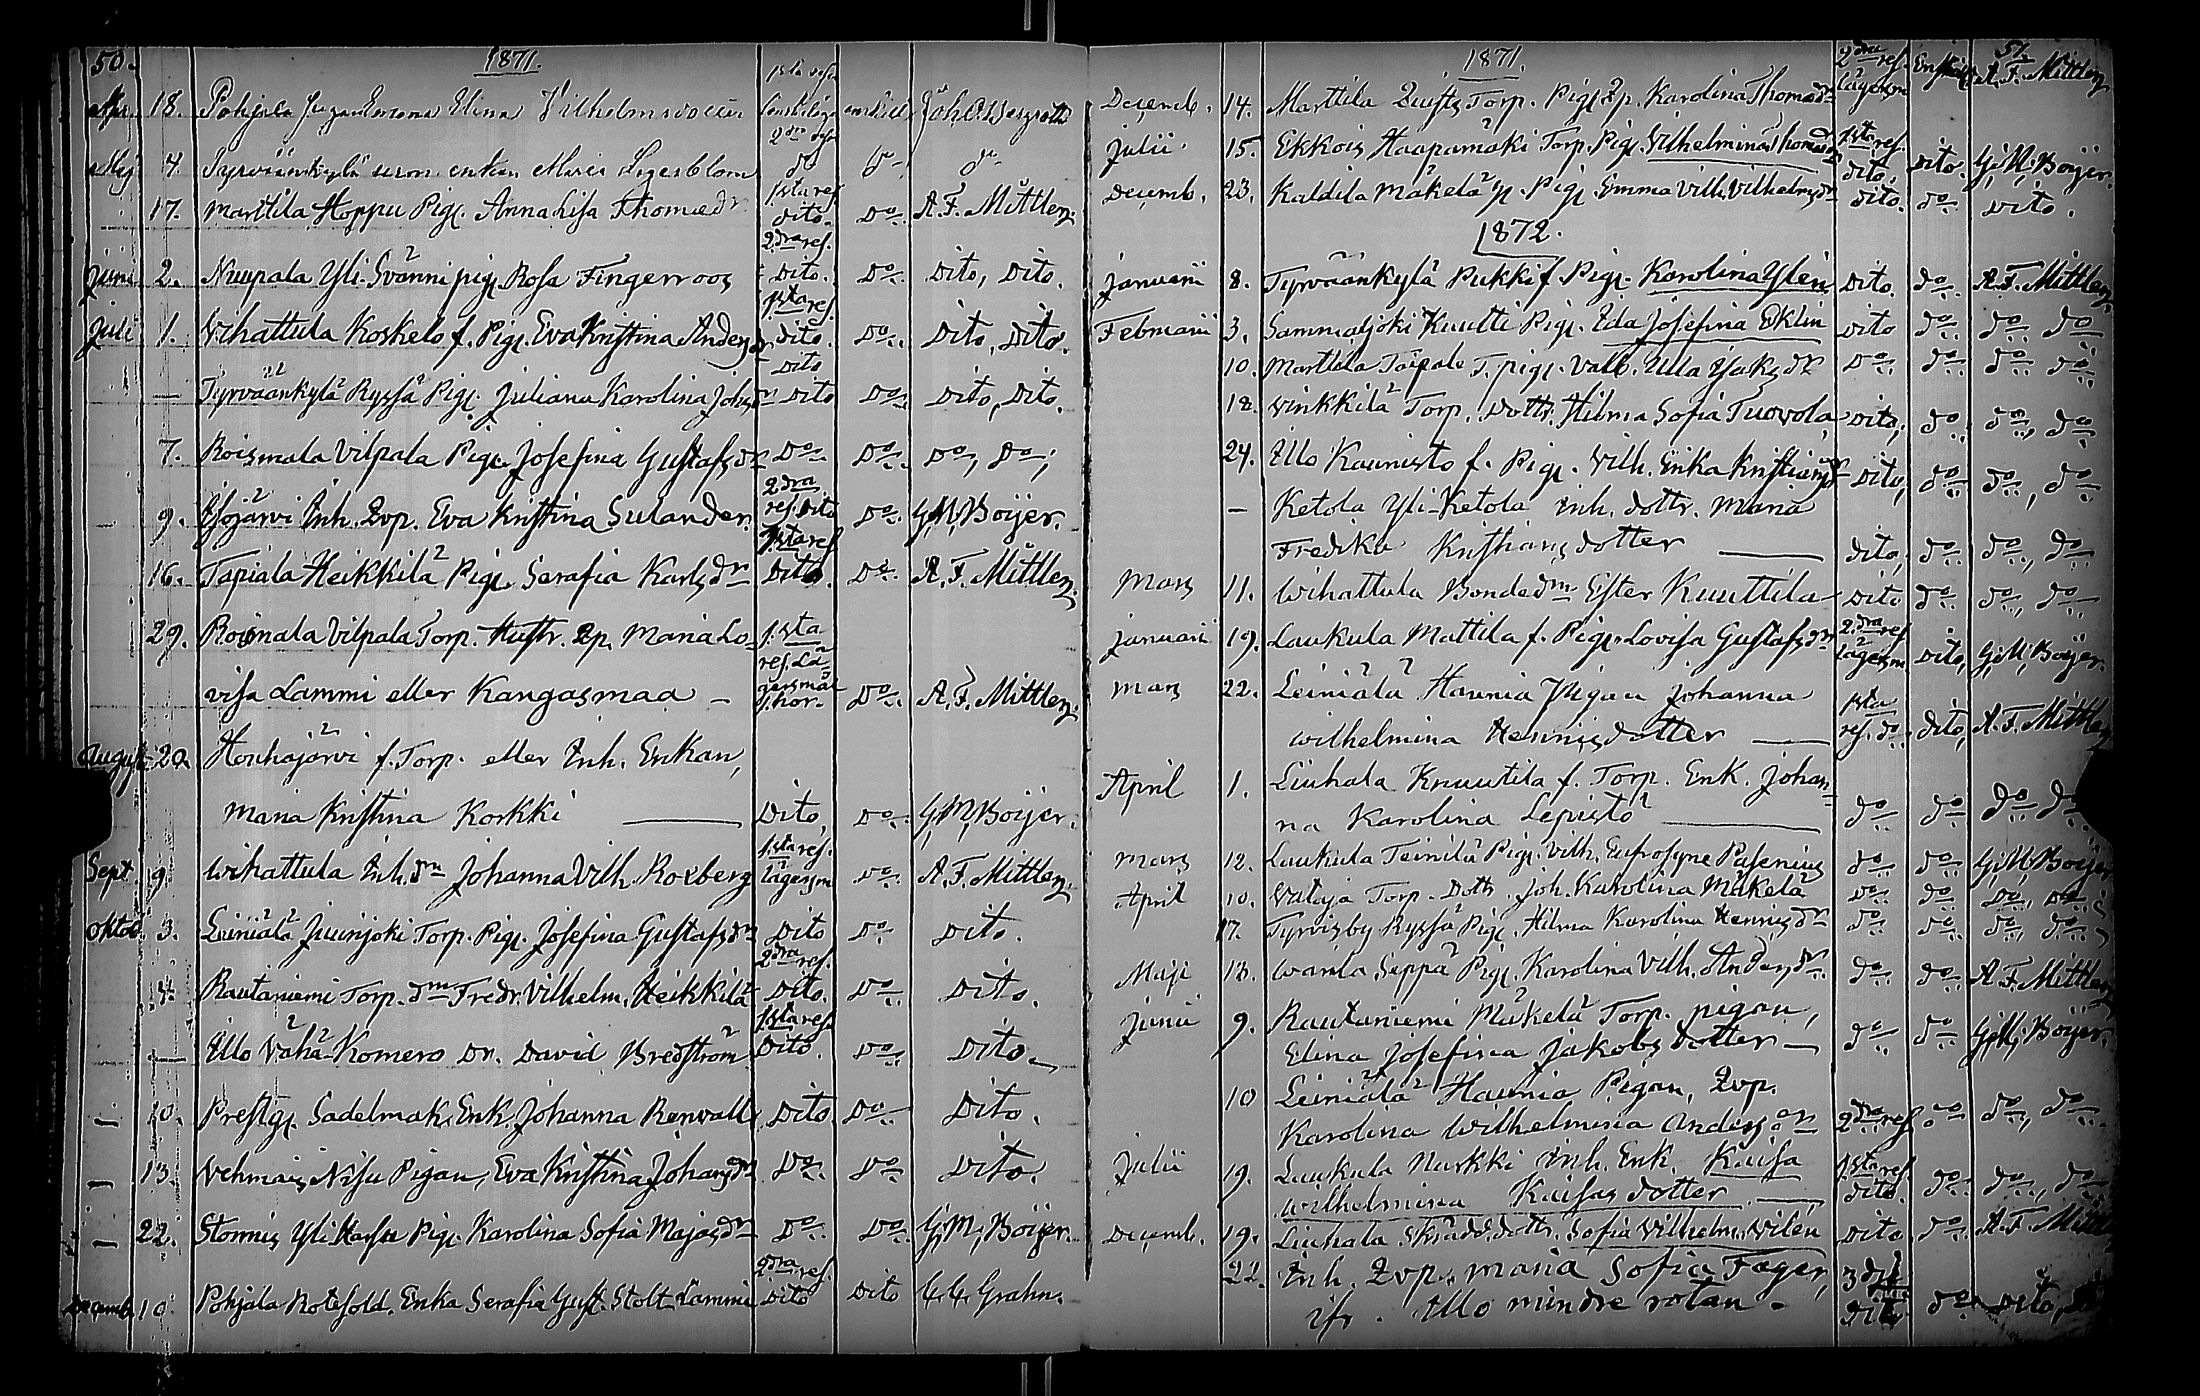 50.
1871.
Apr. 18. Pohjala Elina Vilhelmsdotter enskild
Maj 4. Tyrväänkylä enkan Maria d:o d:o d:o
1:sta res.
17. Marttila Hoppu Pig. Anna Lisa Thomæd:r dito. D:o A. F. Mittler
2:dra res.
Juni 2. Nuupala Yli-Svänni pig. Rosa Fingerroos Dito. D:o Dito, Dito.
1:sta res.
Juli 1. Vihattula Koskelo f. Pig. Eva Kristina Anders dito. D:o Dito, Dito.
Dito
— Tyrväänkylä Ryssä Pig. Juliana Karolina Johs Dito D:o Dito, Dito.
7. Roismala Vilpala Pig. Josefina Gustafsd:r D:o D:o D:o, D:o,
2:dra
9. Inh. Eva Kristina Sulander res. Dito D:o G. M. Boijer.
1:sta res
16. Tapiala Heikkilä Pig. Serafia Karlsd:r Dito. D:o A. F. Mittler
29. Roismala Vilpala Torp. Hustr. Maria Lo- 1:sta
res. Lä-
visa Lammi eller Kangasmaa — D:o A. F. Mittler
August 20. Houhajärvi f. Torp. eller Inh. Enkan,
Maria Kristina Korkki — Dito, D:o G. M. Boijer.
1:sta res.
Sept. 9. Wihattula Inh. Johanna Vilh. Roxberg lägersm D:o A. F. Mittler
Oktob. 3. Leiniälä Juinjoki Torp. Pig. Josefina Gustafsd:r Dito D:o Dito.
2:dra res.
4. Rautaniemi Torp. Fredr. Vilhelm. Heikkilä Dito. D:o Dito.
1:sta res
— Illo Vähä-Komero Dr. David Bredström Dito. D:o Dito.
— 10. Sadelmak. Enk. Johanna Renvall Dito D:o Dito.
— 13. Vehmais Nisu Pigan, Eva Kristina Johansd:r D:o D:o Dito.
— 22. Stormis Yli Pig. Karolina Sofia Majasd:r D:o D:o G. M. Boijer.
2:dra res.
Decemb. 10. Pohjala Rotefold. Enka Serafia Gust. Stolt Lammi Dito Dito Grahn.
51.
1871.
2:dra res.
Decemb. 14. Marttila Torp. Pig. Karolina Thomæd:r lägersm Enskild A. F. Mittler
1:sta res.
Julii 15. Ekkois Haapamäki Torp. Pig. Vilhelmina Thomasd dito. Dito. G. M. Boijer.
Decemb. 23. Kaldila Mäkelä Pig. Emma Vilh. Vilhelmsd:r Dito. D:o Dito.
1872.
Januarii 8. Tyrväänkylä Pukki f. Pig. Karolina Ylén Dito. D:o A. F. Mittler
Februarii 3. Sammaljoki Kuutti Pig. Ida Josefina Eklin Dito D:o D:o D:o
10. Marttila Taipale T. pig. Valb. Ulla D:o D:o D:o D:o
18. Vinkkilä Torp. Dottr. Hilma Sofia Tuovola Dito, D:o D:o, D:o
24. Illo Kaunisto f. Pig. Vilh. Erika Kristiansd:r Dito, D:o D:o, D:o
— Ketola Yli-Ketola Inh. Dottr. Maria
Fredika Kristiansdotter — Dito, D:o D:o, D:o
Mars 11. Wihattula Bonded:m Ester Kuuttila Dito D:o D:o, D:o
2:dra res
Januari 19. Laukula Mattila f. Pig. Lovisa Gustafsd:r lägersm Dito, G. M. Boijer.
Mars 22. Leiniälä Haunia Pigan Johanna 1:sta
Wilhelmina Henrisdotter — res. d:o Dito, A. F. Mittler
April 1. Liuhala Knuutila f. Torp. Enk. Johan-
na Karolina Lepistö — D:o D:o D:o D:o
Mars 12. Laukula Teinilä Pig. Vilh. Eufrosyne Pasenius D:o D:o G. M. Boijer
April 10. Vataja Torp. Dottr. Joh. Karolina Mäkelä D:o D:o D:o, D:o
17. Tyrvisby Ryssä Pig. Hilma Karolina Henrisd:r D:o D:o D:o, D:o
Maji 18. Warila Seppä Pig. Karolina Vilh. Andersd:r D:o D:o A. F. Mittler
Junii 9. Rautaniemi Mäkelä Torp. pigan,
Elina Josefina Jakobsdotter — D:o D:o G. M. Boijer.
10 Leiniälä Haunia Pigan,
Karolina Wilhelmina Andersd:r 2:dra res. D:o D:o, D:o
Julii 19. Laukula Nurkki Inh. Enk. Kaisa 1:sta res
Wilhelmina Kaisasdotter — Dito. D:o D:o, D:o
Decemb. 19. Liuhala Dottr. Sofia Vilhelm. Vilén Dito D:o A. F. Mittl
22. Inh. Maria Sofia Fager,
ifr. Illo mindre rotan. Dito D:o Dito,